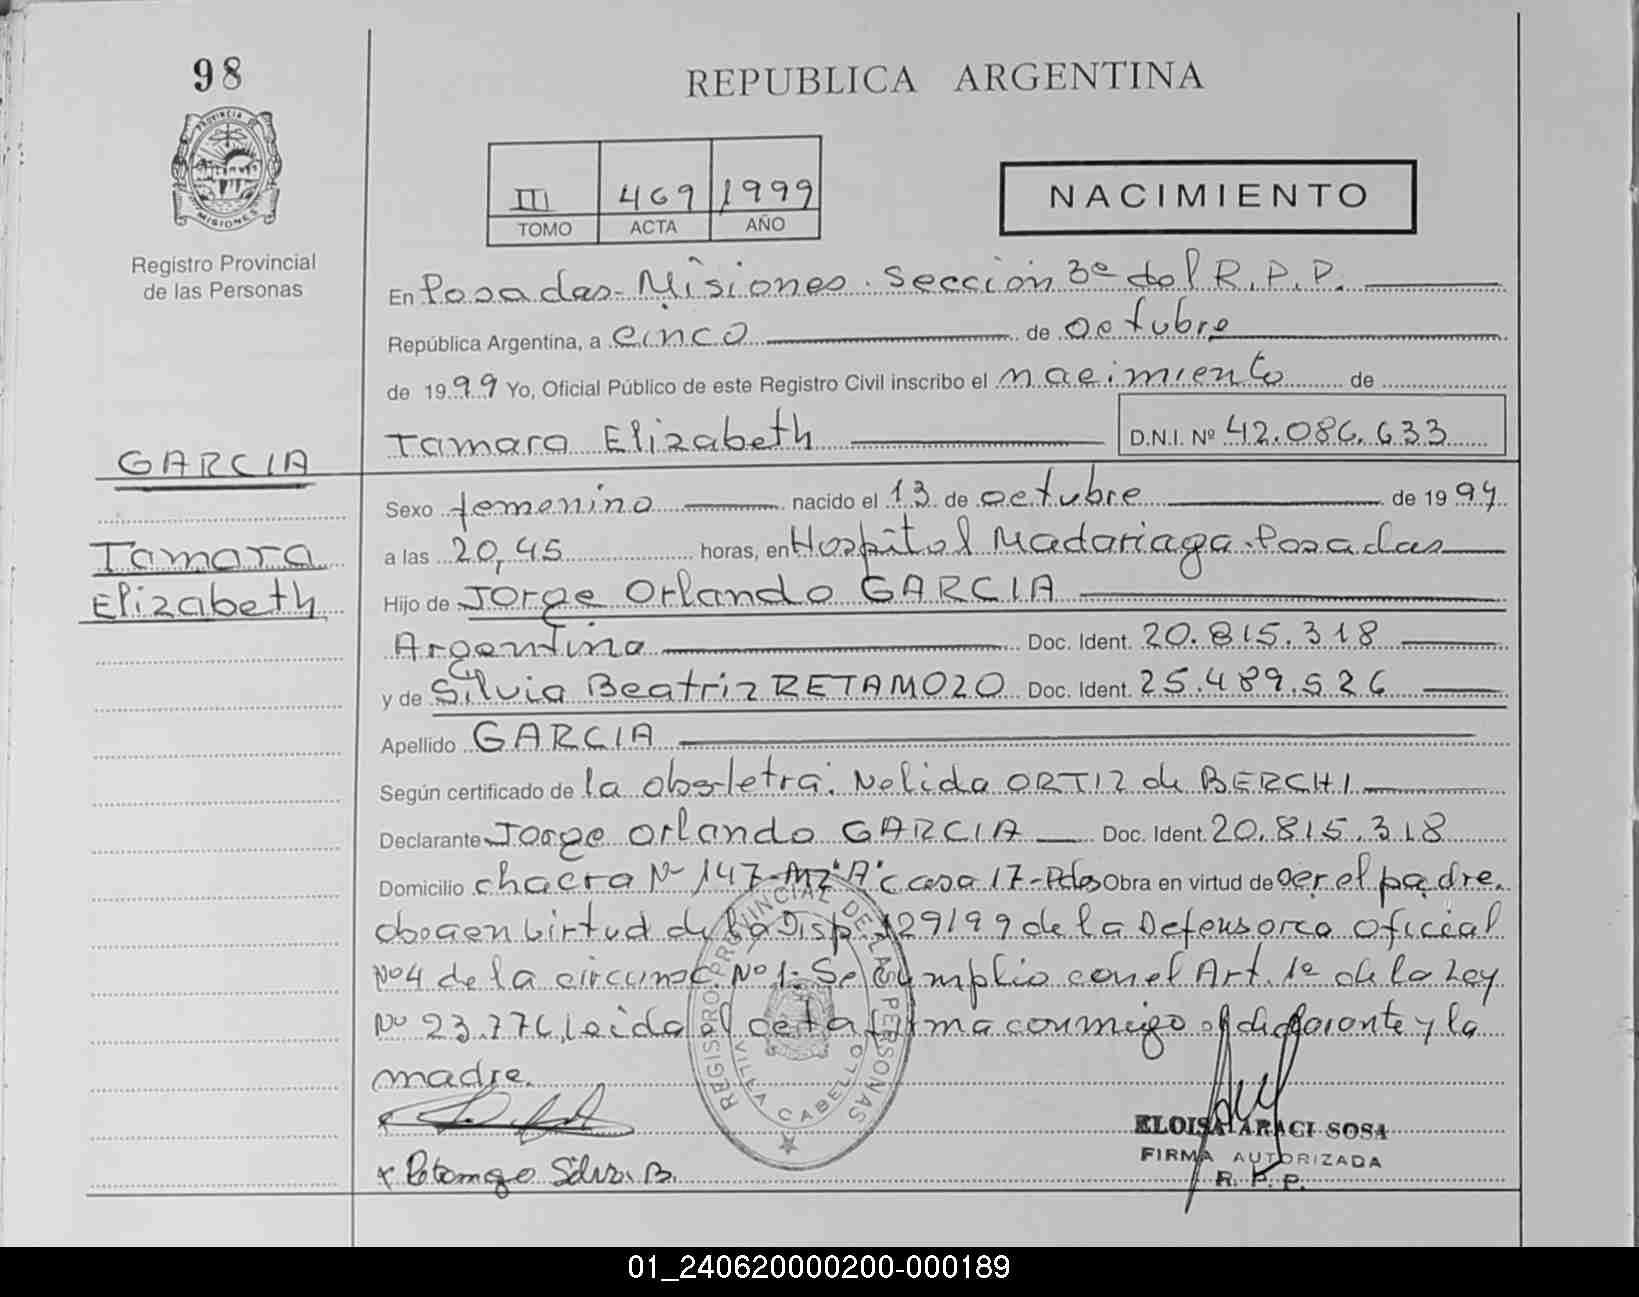 98
REPUBLICA ARGENTINA
PROVINCIA DE
MISIONES
III 469 1999
TOMO ACTA AÑO
NACIMIENTO
Registro Provincial
de las Personas
En Posadas - Misiones. Sección 3ª del R.P.P.
República Argentina, a cinco de octubre
de 1999 Yo, Oficial Público de este Registro Civil inscribo el nacimiento de
Tamara Elizabeth D.N.I. Nº 42.086.633
GARCIA
Sexo femenino nacido el 13 de octubre de 1994
Tamara
a las 20,45 horas, en Hospital Madariaga - Posadas
Elizabeth
Hijo de Jorge Orlando GARCIA
Argentina Doc. Ident. 20.815.318
y de Silvia Beatriz RETAMOZO Doc. Ident. 25.489.526
Apellido GARCIA
Según certificado de la obstetra: Nelida ORTIZ de BERCHI
Declarante Jorge Orlando GARCIA Doc. Ident. 20.815.318
Domicilio chacra Nº 147 - MZ "A" casa 17 - Pdas Obra en virtud de ser el padre.
obra en virtud de la Disp. 129/99 de la Defensora oficial
Nº 4 de la circunsc. Nº 1. Se cumplio con el Art. 1º de la Ley
Nº 23.776, leida el acta firma conmigo el declarante y la
madre.
REGISTRO PROVINCIAL DE LAS PERSONAS
VILLA CABELLO
ELOISA ARACI SOSA
FIRMA AUTORIZADA
R. P. P.
x Retamozo Silvia B.
01_240620000200-000189